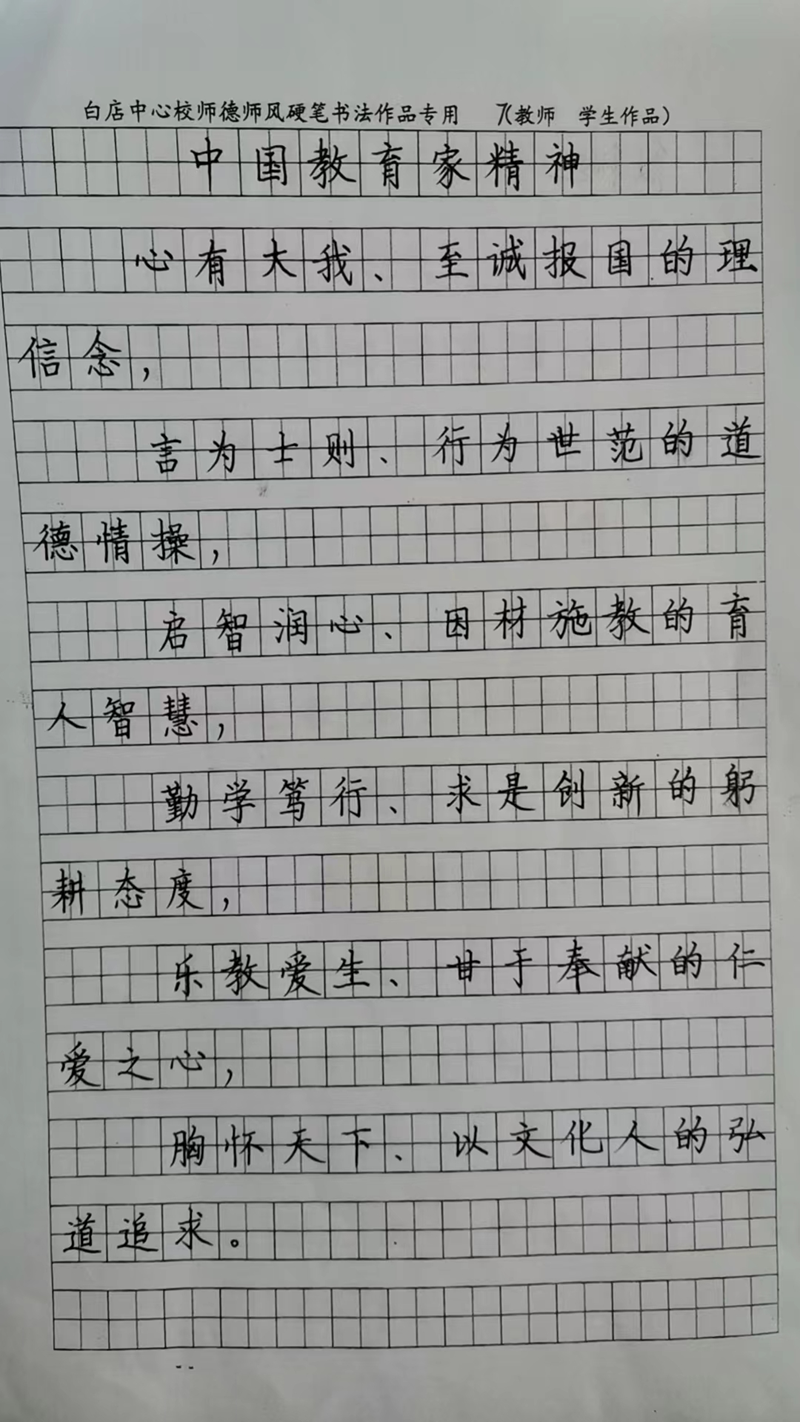 白店中心校师德师风硬笔书法作品专用 7(教师 学生作品)
中国教育家精神
心有大我、至诚报国的理
信念，
言为士则、行为世范的道
德情操，
启智润心、因材施教的育
人智慧，
勤学笃行、求是创新的躬
耕态度，
乐教爱生、甘于奉献的仁
爱之心，
胸怀天下、以文化人的弘
道追求。